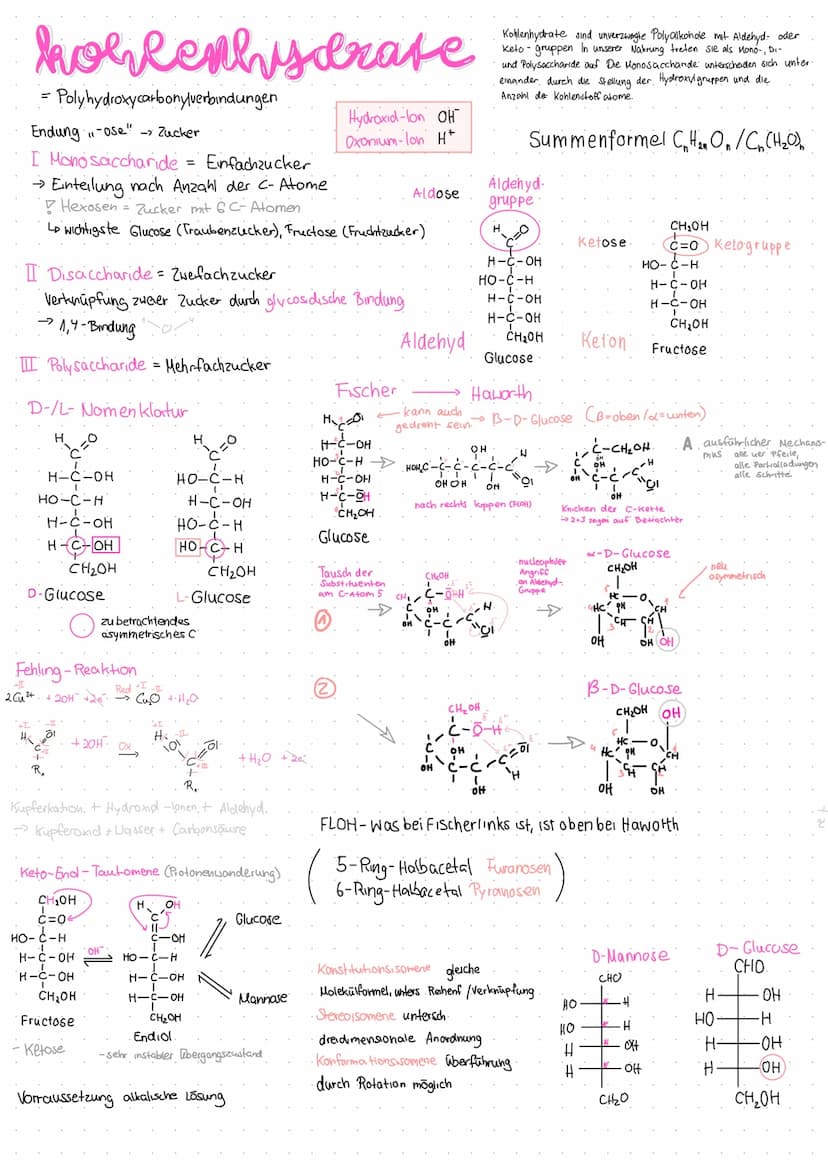 kohlenhydrate
Kohlenhydrate sind unverzweigte Polyalkohole mit Aldehyd- oder
Keto-gruppen In unserer Nahrung treten sie als Mono-, Di-
und Polysaccharide auf Die Monosaccharide unterscheiden sich unter
einander durch die Stellung der Hydroxylgruppen und die
Anzahl der Kohlenstoffatome.
= Polyhydroxycarbonylverbindungen
Endung "-ose" → Zucker
Hydroxid-Ion OH⁻
Oxonium-Ion H⁺
Summenformel CₙH₂ₙOₙ/Cₙ(H₂O)ₙ
I Monosaccharide = Einfachzucker
→ Einteilung nach Anzahl der C-Atome
! Hexosen = Zucker mit 6 C-Atomen
↳ wichtigste Glucose (Traubenzucker), Fructose (Fruchtzucker)
II Disaccharide = Zweifachzucker
Verknüpfung zweier Zucker durch glycosidische Bindung
→ 1,4-Bindung
III Polysaccharide = Mehrfachzucker
Aldose
Aldehyd-
gruppe
H O
C
H-C-OH
HO-C-H
H-C-OH
H-C-OH
CH₂OH
Aldehyd
Glucose
Ketose
CH₂OH
C=O Ketogruppe
HO-C-H
H-C-OH
H-C-OH
CH₂OH
Keton
Fructose
D-/L- Nomenklatur
H O
C
H-C-OH
HO-C-H
H-C-OH
H-C-OH
CH₂OH
D-Glucose
H O
C
HO-C-H
H-C-OH
HO-C-H
HO-C-H
CH₂OH
L-Glucose
zu betrachtendes
asymmetrisches C
Fischer → Haworth
kann auch
gedreht sein → β-D-Glucose (β=oben/α=unten)
H O
C
H-C-OH
HO-C-H
H-C-OH
H-C-OH
CH₂OH
Glucose
OH H
HOH₂C-C-C-C-C-C
OH OH OH O
nach rechts kippen (FLOH)
C-CH₂OH
C OH C H
C-C O
OH
Knicken der C-Kette
→ 2+3 zeigen auf Betrachter
A ausführlicher Mechanis-
mus
alle Partialladungen
alle Schritte
Tausch der
Substituenten
am C-Atom 5
1
CH₂OH
C-O-H
OH
nucleophiler
Angriff
an Aldehyd-
Gruppe
α-D-Glucose
CH₂OH
HC O
HC OH CH
CH-CH
OH OH OH
neu
asymmetrisch
2
CH₂OH
C-O-H
OH OH
C-C-C
OH H
β-D-Glucose
CH₂OH OH
HC O
HC OH CH
CH-CH
OH OH
Fehling-Reaktion
2Cu²⁺ + 2OH⁻ + 2e⁻ Red → Cu₂O + H₂O
H O
C
R
+ 2OH⁻ Ox →
H O
C
R
+ H₂O + 2e⁻
Kupferkation + Hydroxid-Ionen + Aldehyd
→ Kupferoxid + Wasser + Carbonsäure
FLOH - Was bei Fischer links ist, ist oben bei Haworth
(5-Ring-Halbacetal Furanosen)
(6-Ring-Halbacetal Pyranosen)
Keto-Enol-Tautomerie (Protonenwanderung)
CH₂OH
C=O
HO-C-H
H-C-OH
H-C-OH
CH₂OH
Fructose
- Ketose
OH⁻
H OH
C
C-OH
HO-C-H
H-C-OH
H-C-OH
CH₂OH
Endiol
-sehr instabiler Übergangszustand
Glucose
Mannose
Vorraussetzung alkalische Lösung
Konstitutionsisomere gleiche
Molekülformel, unters Reihenf/Verknüpfung
Stereoisomere untersch.
dreidimensionale Anordnung
Konformationsisomere Überführung
durch Rotation möglich
D-Mannose
CHO
HO H
HO H
H OH
H OH
CH₂O
D-Glucose
CHO
H OH
HO H
H OH
H OH
CH₂OH